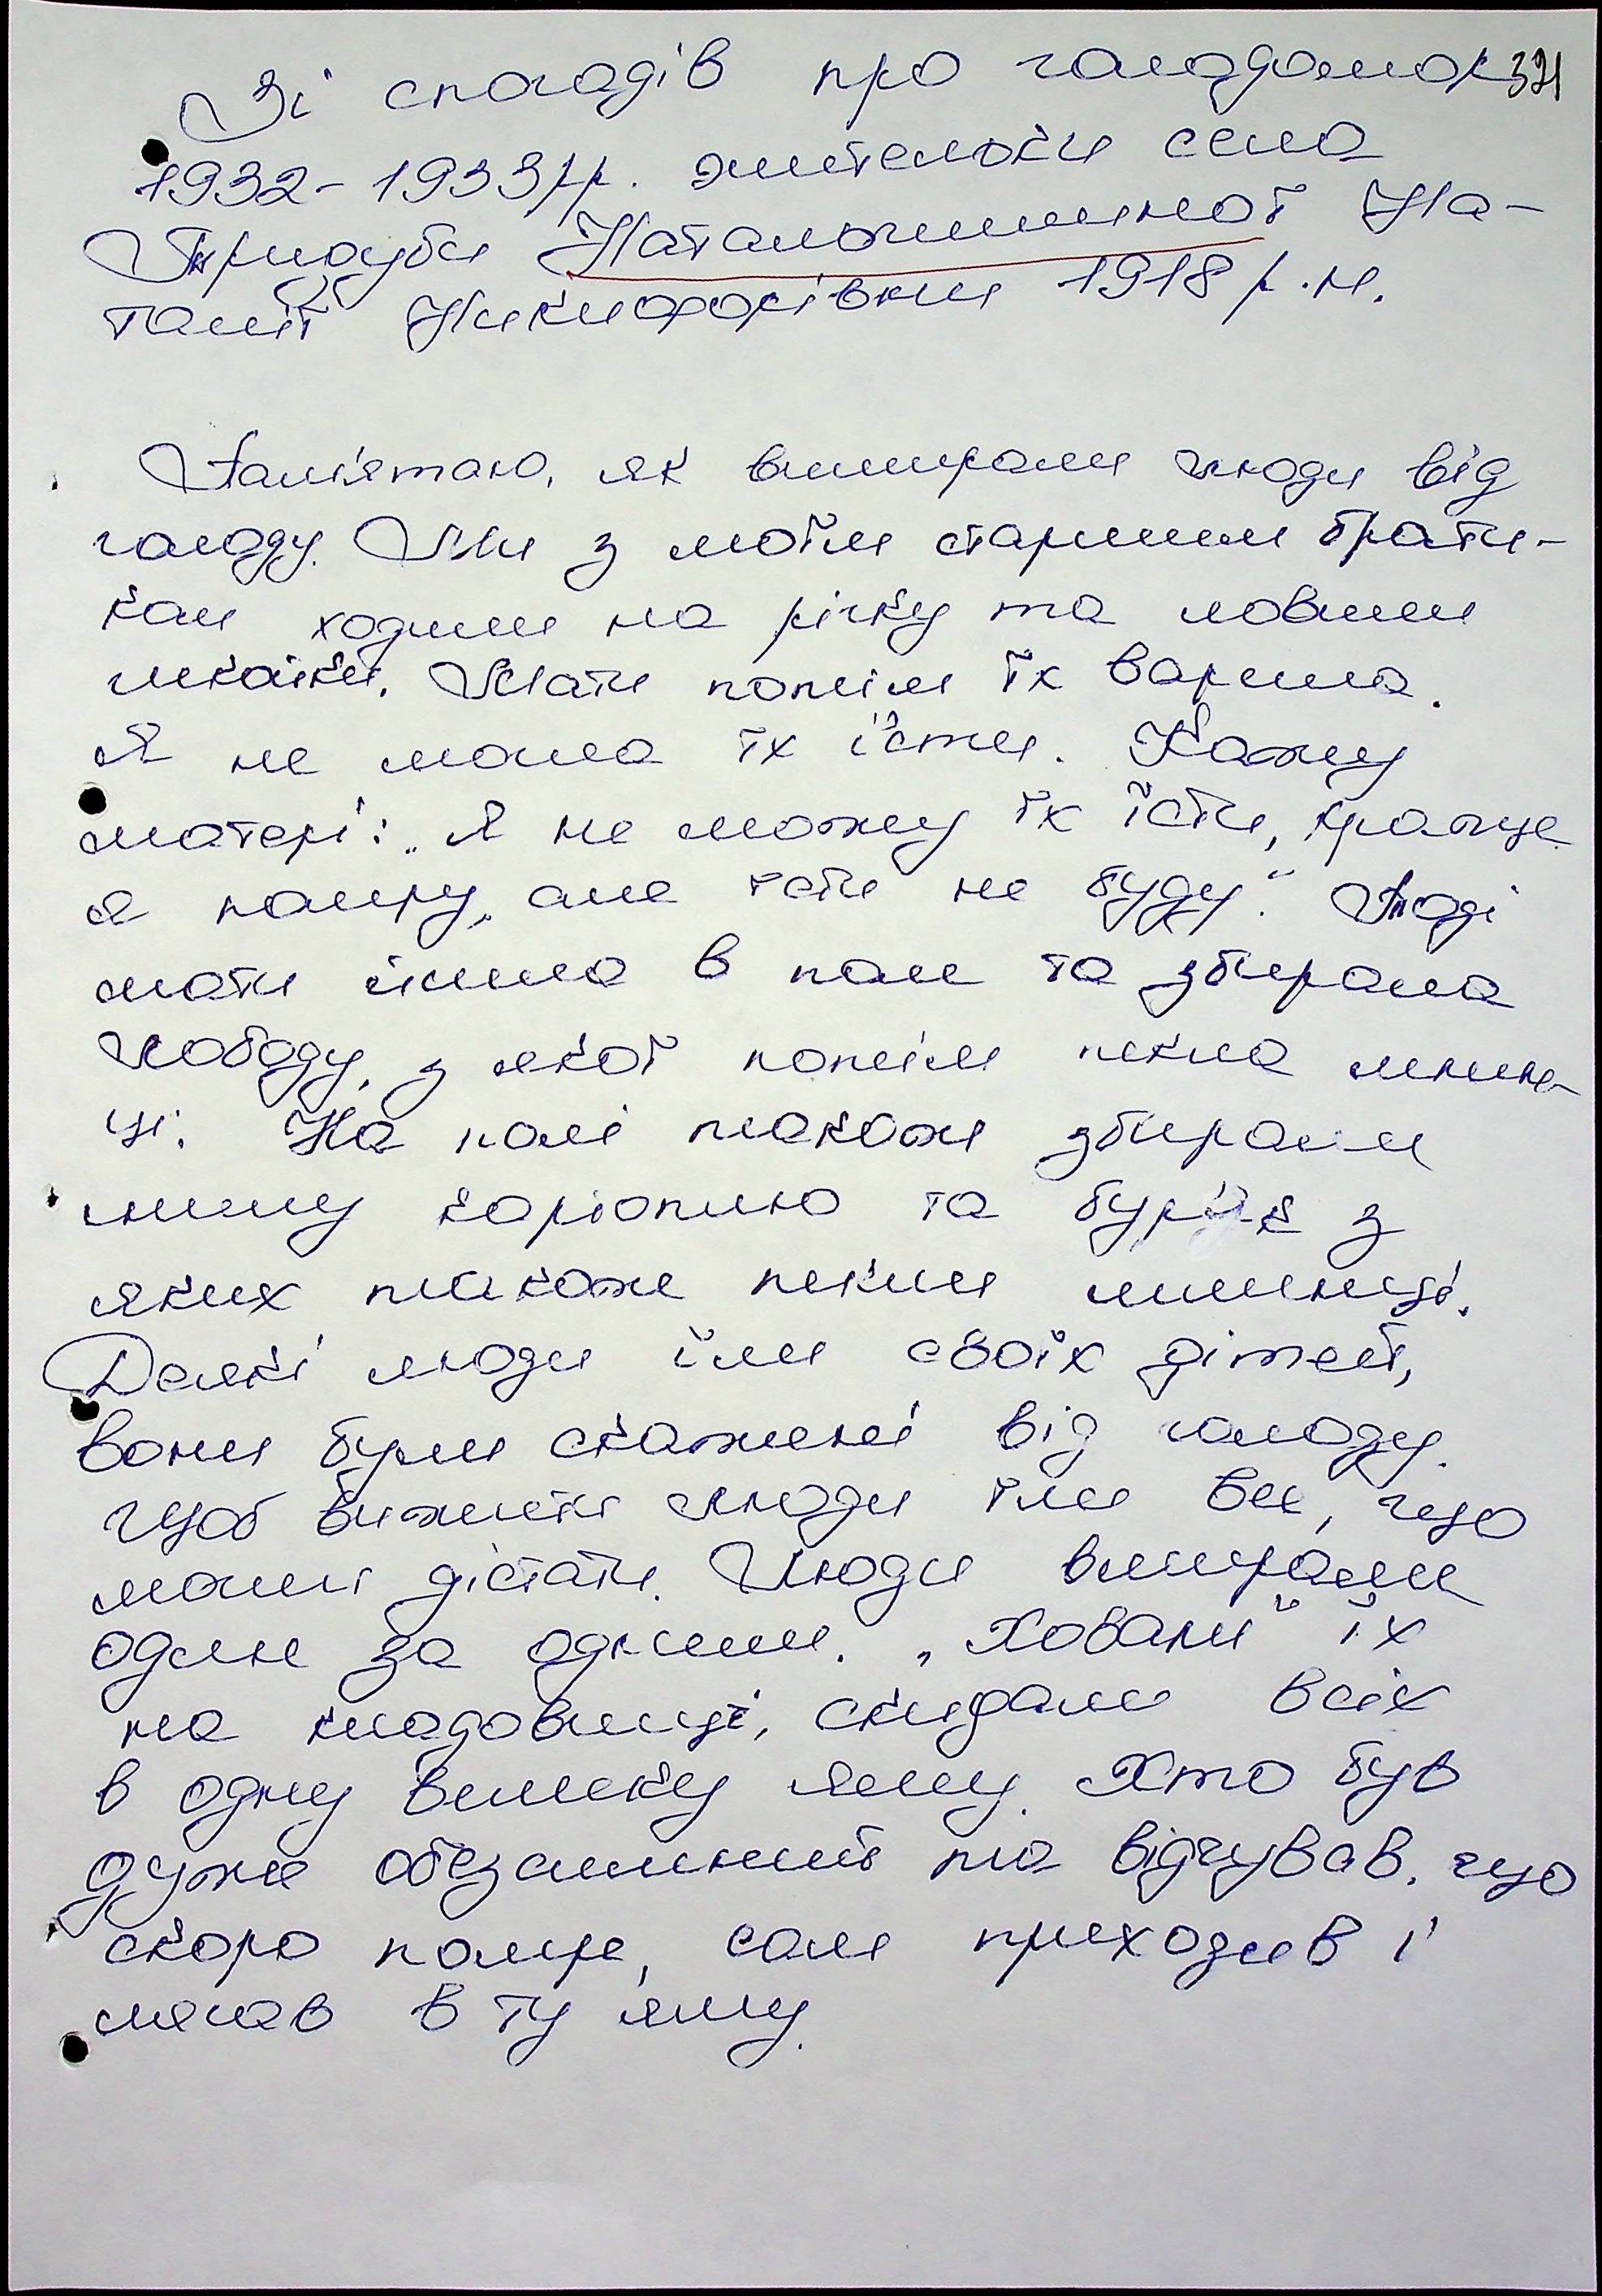 Зі спогадів про голодомор 321
1932-1933рр. жительки села
Трикуби Натальчишиної На-
талії Никифорівни 1918 р.н.
Пам'ятаю, як вмирали люди від
голоду. Ми з моїм старшим брати-
ком ходили на річку та ловили
жабки. Мати потім їх варила.
Я не могла їх їсти. Кажу
матері: „Я не можу їх їсти, краще
я помру, але їсти не буду". Тоді
мати йшла в поле та збирала
лободу, з якої потім пекла млин-
ці. На полі також збирали
гнилу картоплю та буряк з
яких також пекли млинці.
Деякі люди їли своїх дітей,
вони були скажені від голоду.
Щоб вижити люди їли все, що
могли дістати. Люди вмирали
один за одним. „Ховали" їх
на кладовищі, скидали всіх
в одну велику яму. Хто був
дуже обезсилений та відчував, що
скоро помре, сам приходив і
лягав в ту яму.